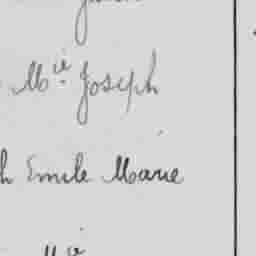 Mie Joseph
h Emile Marie
Mie